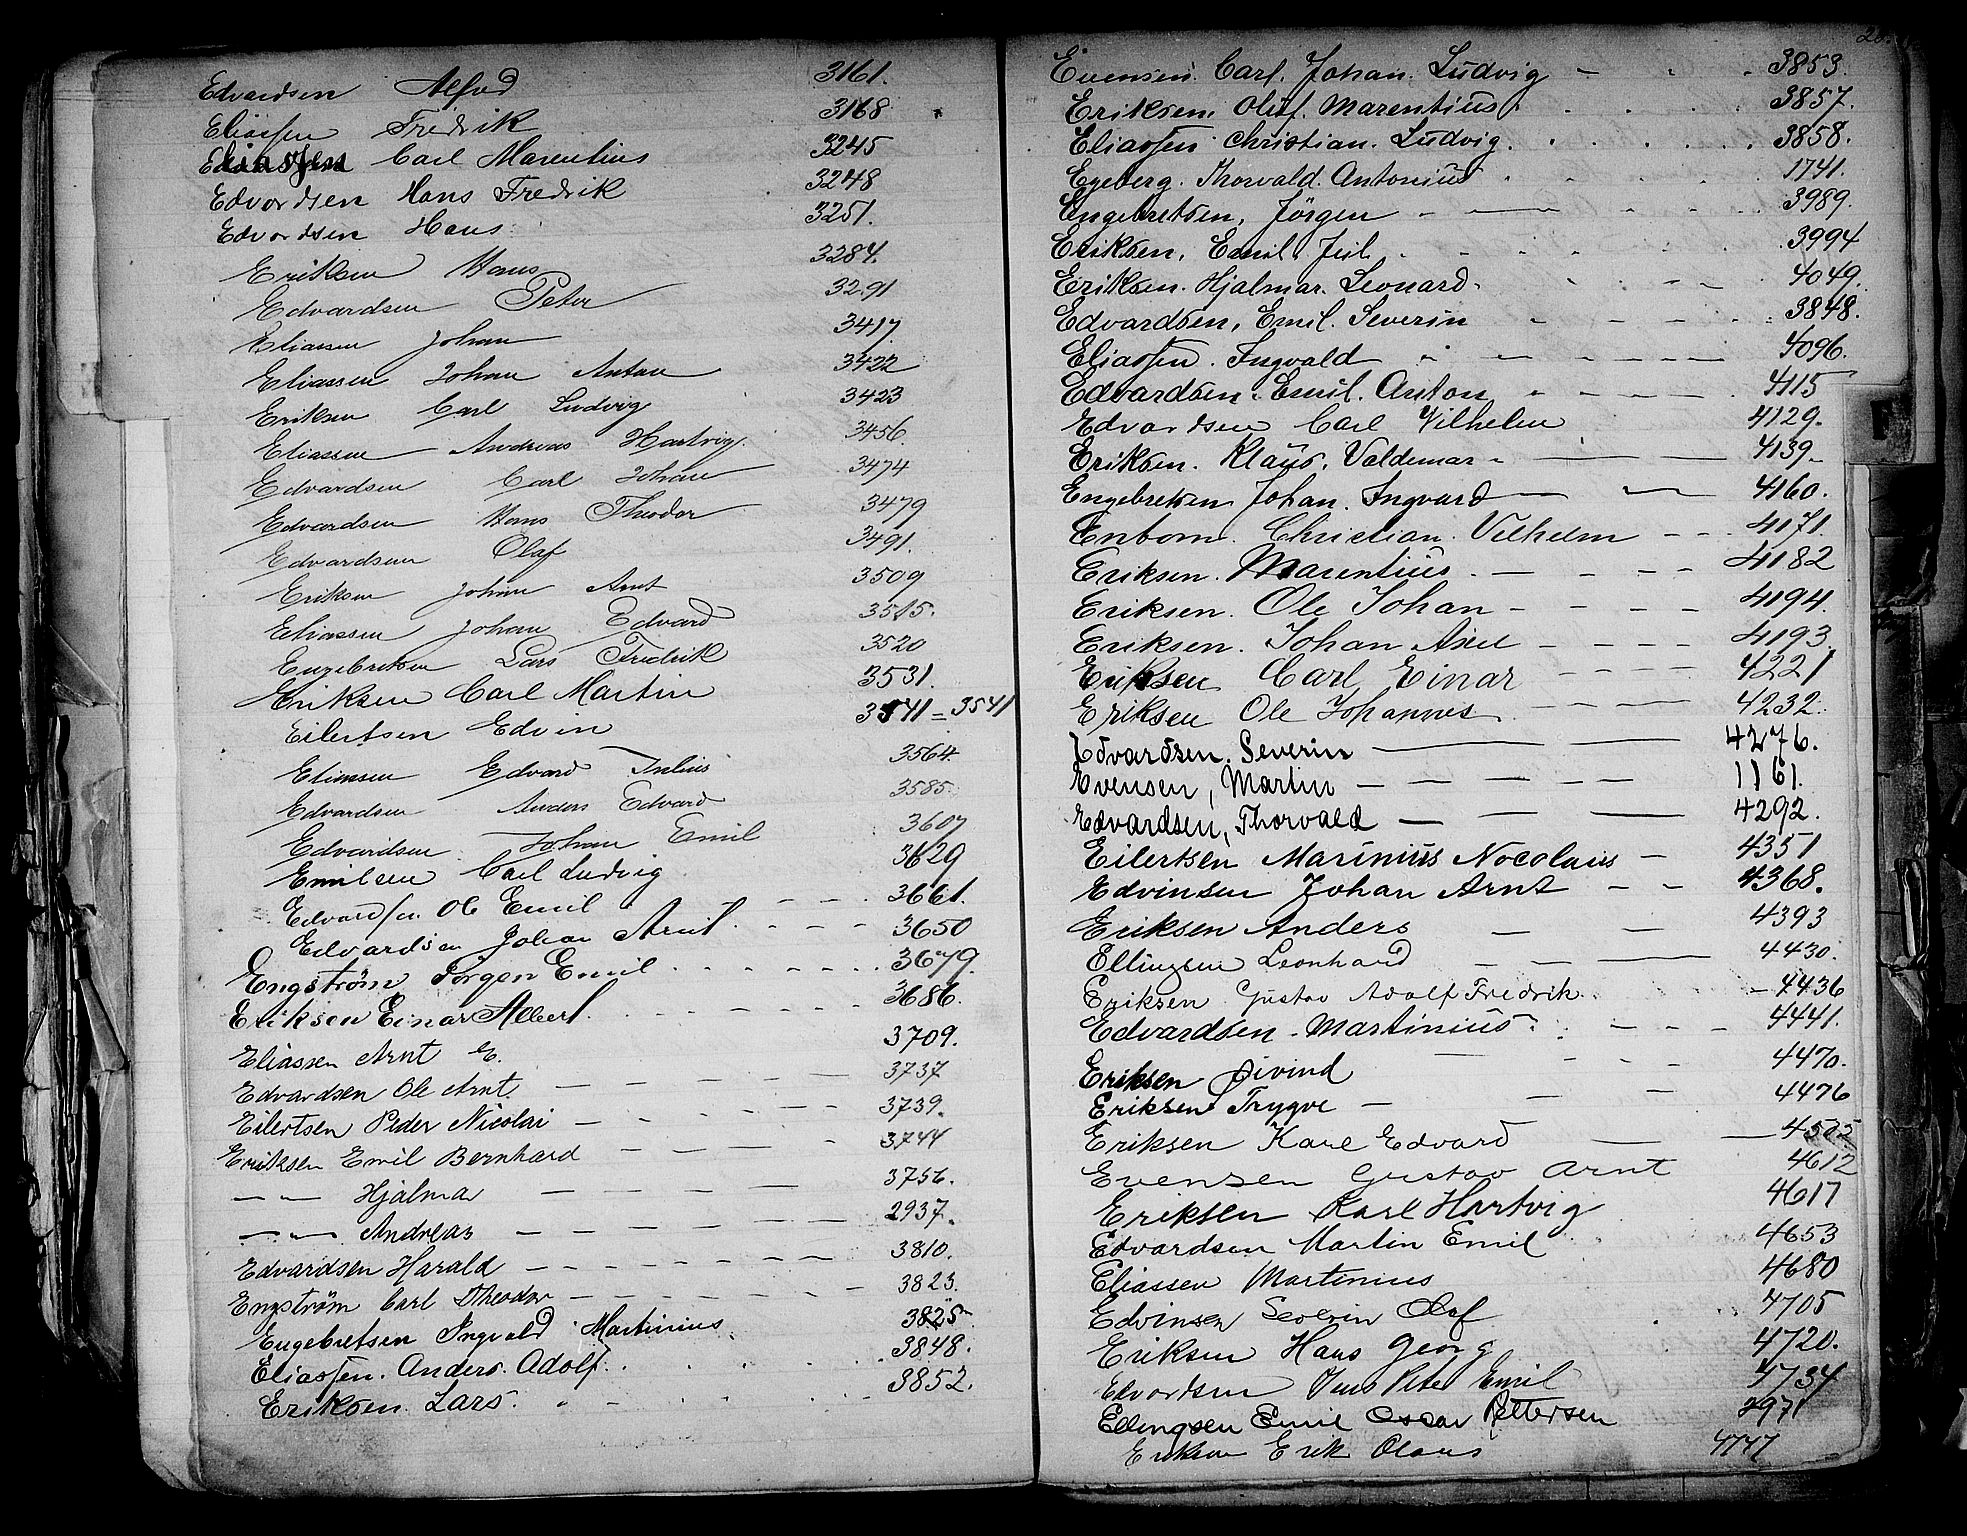 Edvardsen Alfred 3161.
Eliassen Fredrik 3168
Eliassen Carl Marentius 3245
Edvardsen Hans Fredrik 3248
Edvardsen Hans 3251.
Eriksen Hans 3284.
Edvardsen Peter 3291
Eliassen Johan 3417
Eliassen Johan Anton 3422
Eriksen Carl Ludvig 3423
Eliassen Andreas Hartvig. 3456
Edvardsen Carl Johan 3474
Edvardsen Hans Theodor 3479
Edvardsen Olaf 3491.
Eriksen Johan Arnt 3509
Eliassen Johan Edvard 3515.
Engebretsen Lars Fredrik 3520
Eriksen Carl Martin 3531.
Eilertsen Edvin 3541 = 3541
Eliassen Edvard Julius 3564.
Edvardsen Anders Edvard 3585
Edvardsen Johan Emil 3607
Emilsen Carl Ludvig 3629
Edvardsen Ole Emil 3661.
Edvardsen Johan Arnt 3650
Engström Jörgen Emil 3679.
Eriksen Einar Albert. 3686.
Eliassen Arnt E. 3709.
Edvardsen Ole Arnt. 3737
Eilertsen Peder Nicolai 3739.
Eriksen Emil Bernhard 3744
— " — Hjalmar 3756.
— " — Andreas 2937.
Edvardsen Harald 3810.
Engström Carl Theodor 3823.
Engebretsen Ingvald Martinius 3825
Eliassen. Anders. Adolf. 3848.
Eriksen. Lars. 3852.
Evensen. Carl. Johan. Ludvig 3853.
Eriksen. Oluf. Marentius. 3857.
Eliassen Christian. Ludvig. 3858.
Egeberg. Thorvald. Antonius 1741.
Engebretsen, Jörgen 3989.
Eriksen, Emil, Juel. 3994
Eriksen. Hjalmar. Leonard. 4049.
Edvardsen, Emil. Severin 3848.
Eliassen. Ingvald 4096.
Edvardsen. Emil. Anton 4115
Edvardsen Carl Vilhelm 4129.
Eriksen. Klaus. Valdemar 4139
Engebretsen Johan. Ingvard 4160.
Enbom. Christian. Vilhelm 4171.
Eriksen. Marentius. 4182
Eriksen. Ole Johan 4194.
Eriksen. Johan Axel 4193
Eriksen Carl Einar 4221
Eriksen Ole Johannes 4232.
Edvardsen, Severin 4276.
Evensen, Martin 1161.
Edvardsen, Thorvald 4292.
Eilertsen Marinius Nocolaus 4351
Edvinsen Johan Arnt 4368.
Eriksen Anders 4393
Ellingsen Leonhard 4430
Eriksen Gustav Adolf Fredrik 4436
Edvardsen Martinius. 4441.
Eriksen Øivind 4470.
Eriksen Trygve 4476
Eriksen Karl Edvard 4505
Evensen Gustav Arnt 4612
Eriksen Karl Hartvig 4617
Edvardsen Martin Emil 4653
Eliassen Martinius 4680
Edvinsen Severin Olaf 4705
Eriksen Hans Georg 4720.
Edvardsen Jens Peter Emil 4734
Edingsen Emil Oscar Pettersen 2971
Eriksen Erik Olaus 4747